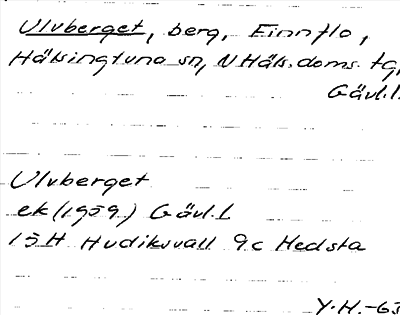 Ulvberget, berg, Finnflo,
Hälsingtuna sn, N Häls. doms. tg,
Gävl.l.
Ulvberget
ek (1959) Gävl.L
15H Hudiksvall 9c Hedsta
Y.H.-63